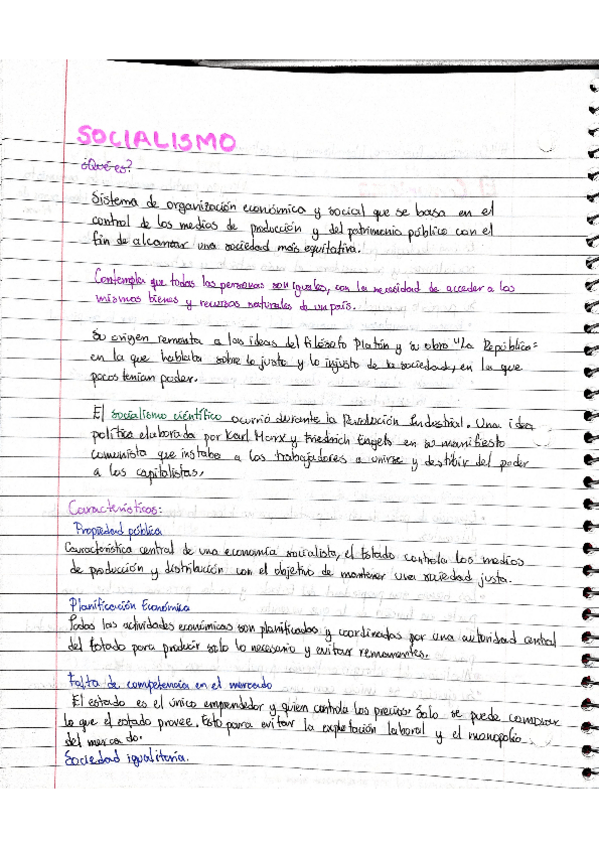 SOCIALISMO
¿Qué es?
Sistema de organización económica y social que se basa en el
control de los medios de producción y del patrimonio público con el
fin de alcanzar una sociedad más equitativa.
Contempla que todas las personas son iguales, con la necesidad de acceder a los
mismos bienes y recursos naturales de un país.
Su origen remonta a las ideas del filósofo Platón y su obra "La República"
en la que hablaba sobre lo justo y lo injusto de la sociedad, en la que
pocos tenían poder.
El socialismo científico ocurrió durante la Revolución Industrial. Una idea
política elaborada por Karl Marx y Friedrich Engels en su manifiesto
comunista que instaba a los trabajadores a unirse y destituir del poder
a los capitalistas.
Características:
Propiedad pública
Característica central de una economía socialista, el Estado controla los medios
de producción y distribución con el objetivo de mantener una sociedad justa.
Planificación Económica
Todas las actividades económicas son planificadas y coordinadas por una autoridad central
del Estado para producir solo lo necesario y evitar remanentes.
Falta de competencia en el mercado
El estado es el único emprendedor y quien controla los precios. Solo se puede comprar
lo que el estado provee. Esto para evitar la explotación laboral y el monopolio
del mercado.
Sociedad igualitaria.